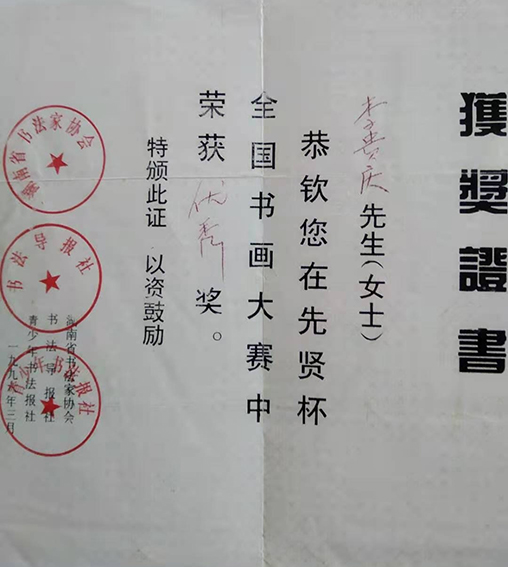 獲獎證書
李贵庆先生(女士)
恭钦您在先贤杯
全国书画大赛中
荣获优秀奖。
特颁此证 以资鼓励
河南省书法家协会
书法导报社
青少年书法报社
一九九年三月
河南省书法家协会
书法导报社
青少年书法报社